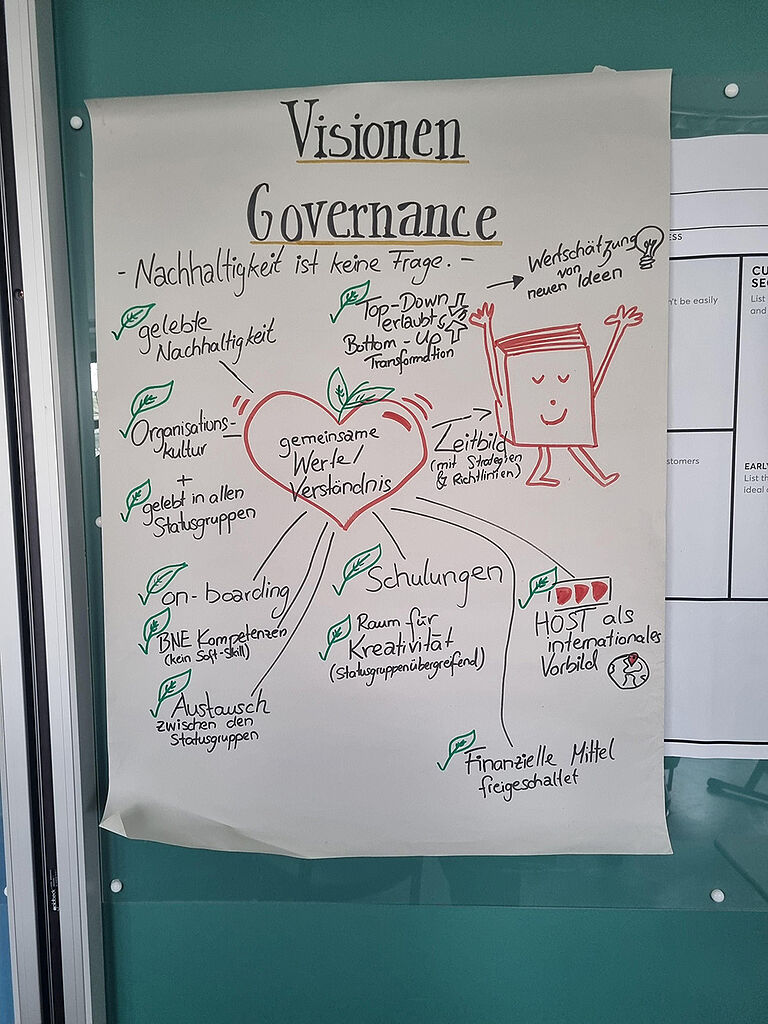 Visionen
Governance
- Nachhaltigkeit ist keine Frage. -
gelebte
Nachhaltigkeit
Organisations-
kultur
+
gelebt in allen
Statusgruppen
Top-Down
erlaubt
Bottom-Up
Transformation
Wertschätzung
von
neuen Ideen
gemeinsame
Werte/
Verständnis
Leitbild
(mit Strategien
& Richtlinien)
on-boarding
BNE Kompetenzen
(kein Soft-Skill)
Austausch
zwischen den
Statusgruppen
Schulungen
Raum für
Kreativität
(Statusgruppenübergreifend)
HOST als
internationales
Vorbild
Finanzielle Mittel
freigeschaltet
ESS
n't be easily
stomers
CU
SE
List
and
EARLY
List th
ideal c